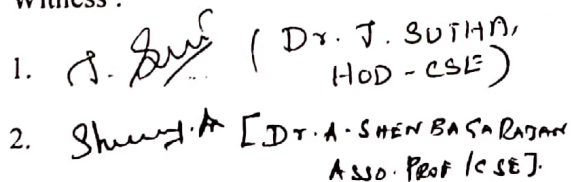 Witness :
1. J. ( Dr. J. SUTHA,
HOD - CSE)
2. [Dr. A. SHENBAGARAJAN
Asso. Prof / CSE].